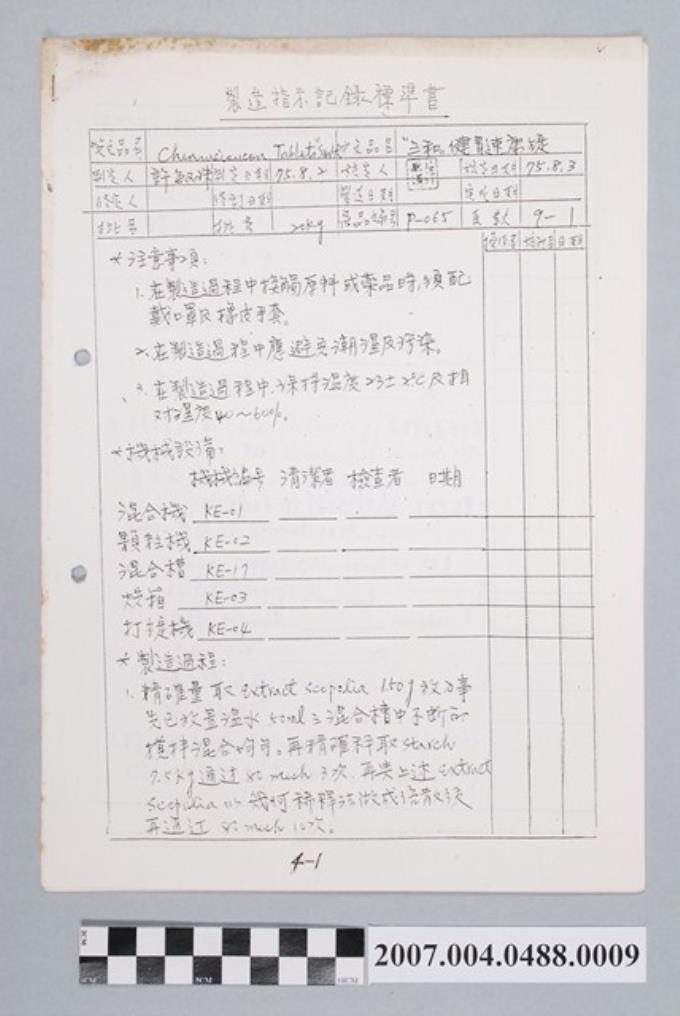 製造指示記錄標準書
英文品名 Tablet 中文品名 "三和" 健胃速
制定人 制定日期 75.8.2 核定人 核定日期 75.8.3
修定人 修訂日期 製造日期 完成日期
批號 批量 20kg 產品編號 P-065 頁數 9-1
操作者 檢視者 日期
*注意事項:
1. 在製造過程中接觸原料或藥品時,須配
戴口罩及橡皮手套。
2. 在製造過程中應避免潮溼及污染。
3. 在製造過程中,保持溫度23±2°C及相
對溼度40~60%。
*機械設備:
機械編號 清潔者 檢查者 日期
混合機 KE-01
顆粒機 KE-02
混合槽 KE-17
烘箱 KE-03
打錠機 KE-04
*製造過程:
1. 精確量取 extract scopolia 150g 放入事
先已放置溫水 50ml 之混合槽中不斷的
攪拌混合均勻。再精確秤取 starch
7.5kg 通过 80 mesh 3次,再與上述 extract
scopolia 以幾何稀釋法做成倍散後
再通过 80 mesh 次。
4-1
2007.004.0488.0009